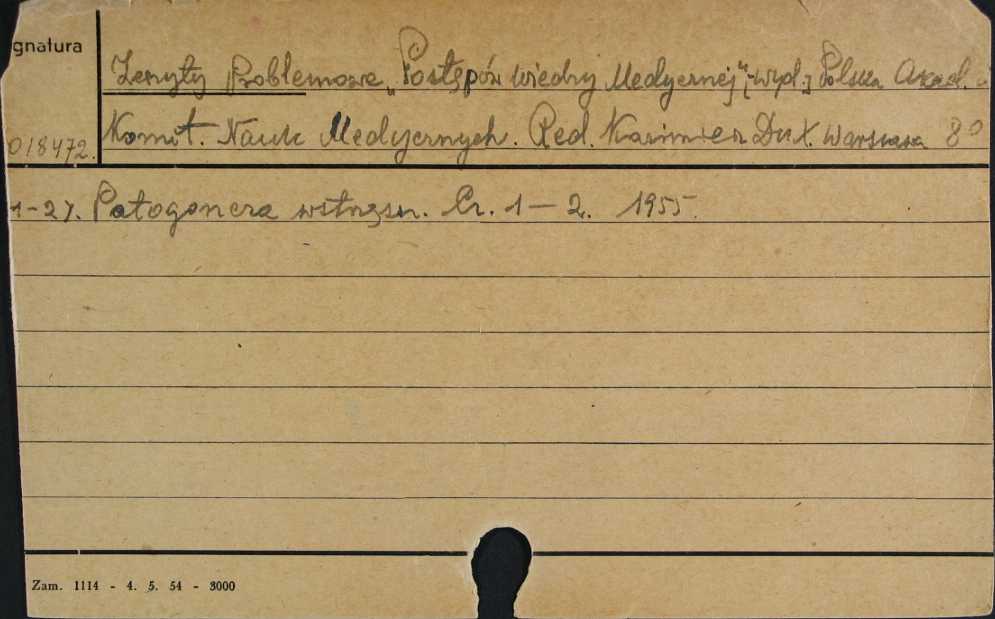 gnatura
Zeszyty Problemowe „Postępów Wiedzy Medycznej", [wyd.:] Polska Akad.
018472. Komit. Nauk Medycznych. Red. Kazimierz Dux. Warszawa 8°
1-27. Patogeneza wstrząsu. Cz. 1-2. 1955.
Zam. 1114 - 4. 5. 54 - 3000